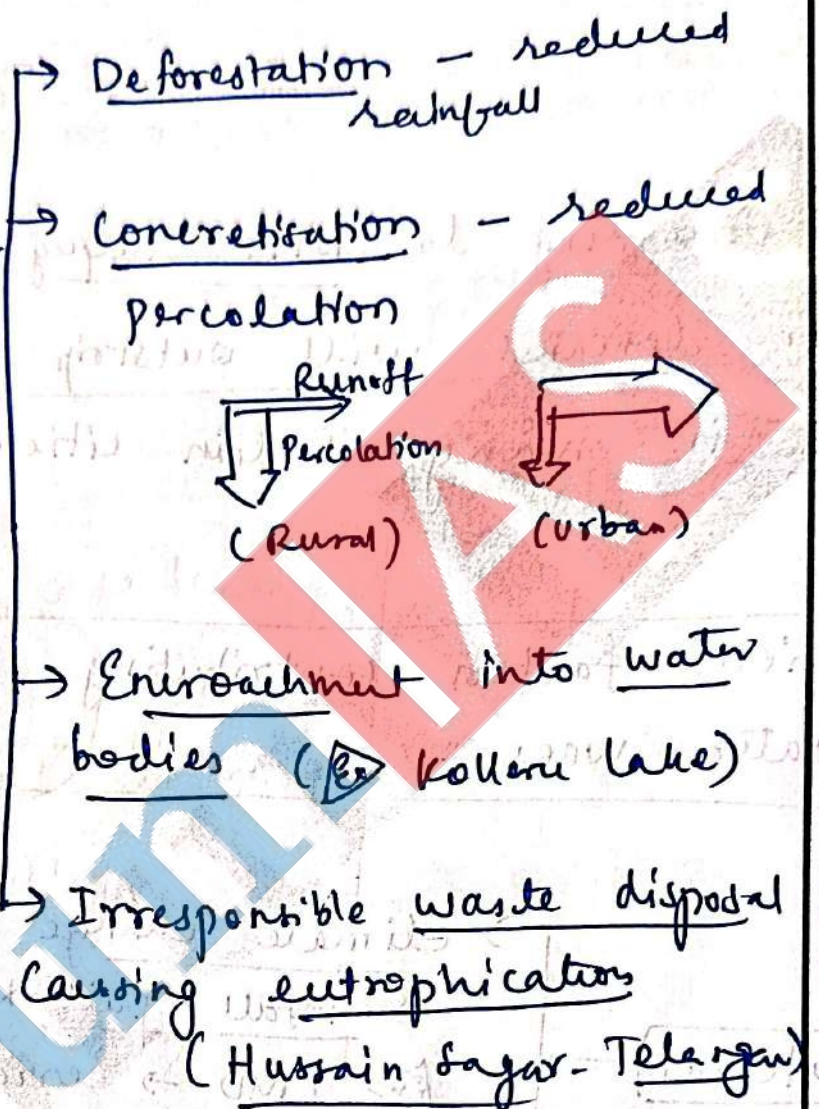 → Deforestation - reduced
rainfall
→ Concretisation - reduced
percolation
Runoff
Percolation
(Rural)
(Urban)
→ Encroachment into water
bodies (Ex Kolleru Lake)
→ Irresponsible waste disposal
Causing eutrophication
(Hussain Sagar - Telangana)
um IAS